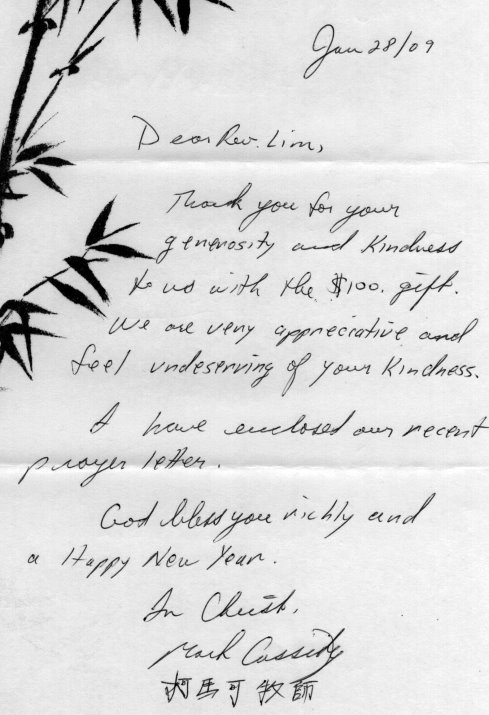 Jan 28/09
Dear Rev. Lim,
Thank you for your
generosity and kindness
to us with the $100. gift.
We are very appreciative and
feel undeserving of your kindness.
I have enclosed our recent
prayer letter.
God bless you richly and
a Happy New Year.
In Christ,
Mark Cassidy
柯馬可牧師